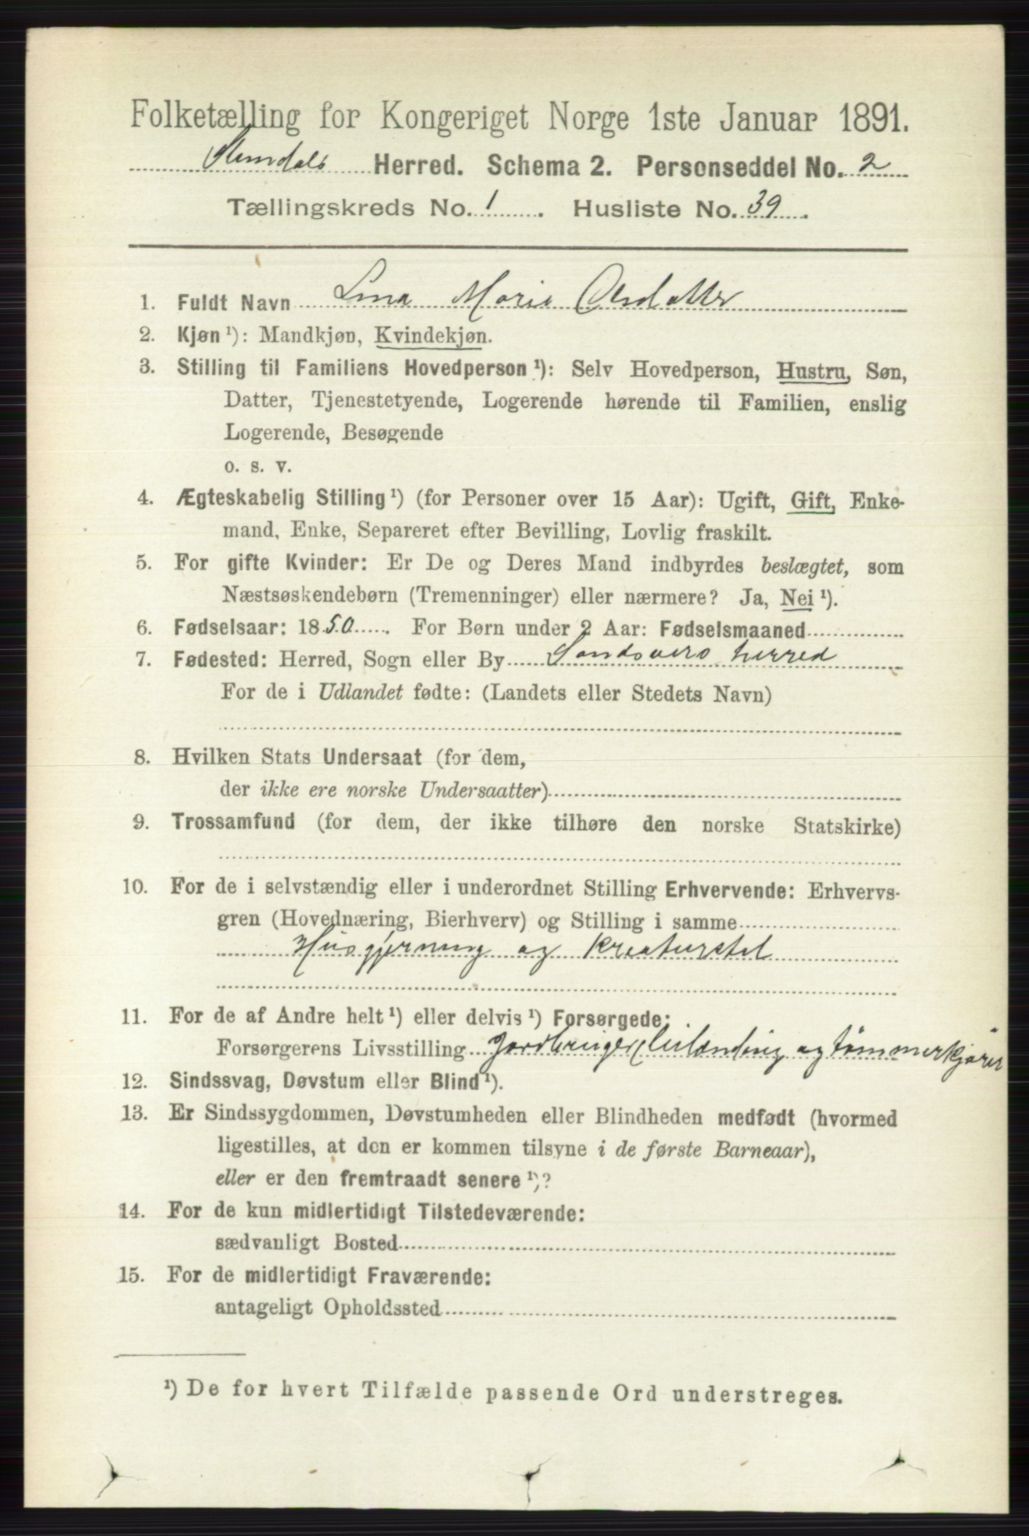 Folketælling for Kongeriget Norge 1ste Januar 1891.
Herred. Schema 2. Personseddel No. 2
Tællingskreds No. 1. Husliste No. 39.
1. Fuldt Navn Lina Maria Olsdatter
2. Kjøn ¹): Mandkjøn, Kvindekjøn.
3. Stilling til Familiens Hovedperson ¹): Selv Hovedperson, Hustru, Søn,
Datter, Tjenestetyende, Logerende hørende til Familien, enslig
Logerende, Besøgende
o. s. v.
4. Ægteskabelig Stilling ¹) (for Personer over 15 Aar): Ugift, Gift, Enke-
mand, Enke, Separeret efter Bevilling, Lovlig fraskilt.
5. For gifte Kvinder: Er De og Deres Mand indbyrdes beslægtet, som
Næstsøskendebørn (Tremenninger) eller nærmere? Ja, Nei ¹).
6. Fødselsaar: 1850. For Børn under 2 Aar: Fødselsmaaned
7. Fødested: Herred, Sogn eller By Sandsværs herred
For de i Udlandet fødte: (Landets eller Stedets Navn)
8. Hvilken Stats Undersaat (for dem,
der ikke ere norske Undersaatter)
9. Trossamfund (for dem, der ikke tilhøre den norske Statskirke)
10. For de i selvstændig eller i underordnet Stilling Erhvervende: Erhvervs-
gren (Hovednæring, Bierhverv) og Stilling i samme
Husgjerning og kreaturstel
11. For de af Andre helt ¹) eller delvis ¹) Forsørgede:
Forsørgerens Livsstilling Jordbruger og tømmerkjører
12. Sindssvag, Døvstum eller Blind ¹).
13. Er Sindssygdommen, Døvstumheden eller Blindheden medfødt (hvormed
ligestilles, at den er kommen tilsyne i de første Barneaar),
eller er den fremtraadt senere ¹)?
14. For de kun midlertidigt Tilstedeværende:
sædvanligt Bosted
15. For de midlertidigt Fraværende:
antageligt Opholdssted
¹) De for hvert Tilfælde passende Ord understreges.